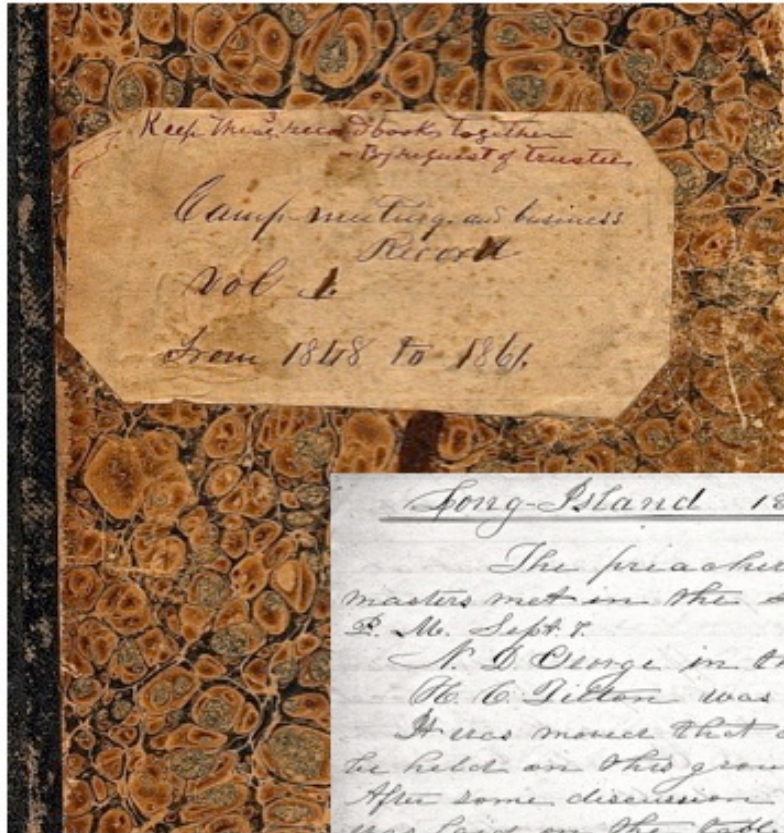 Keep these record books together
- By request of trustees
Camp-meeting and business
Record
Vol 1.
From 1848 to 1861.
Long-Island 18
The preacher
masters met in the
P. M. Sept. 7.
N. D. George in t
H. C. Tilton was
It was moved that a
be held on this grou
After some discussion
was laid on the tabl